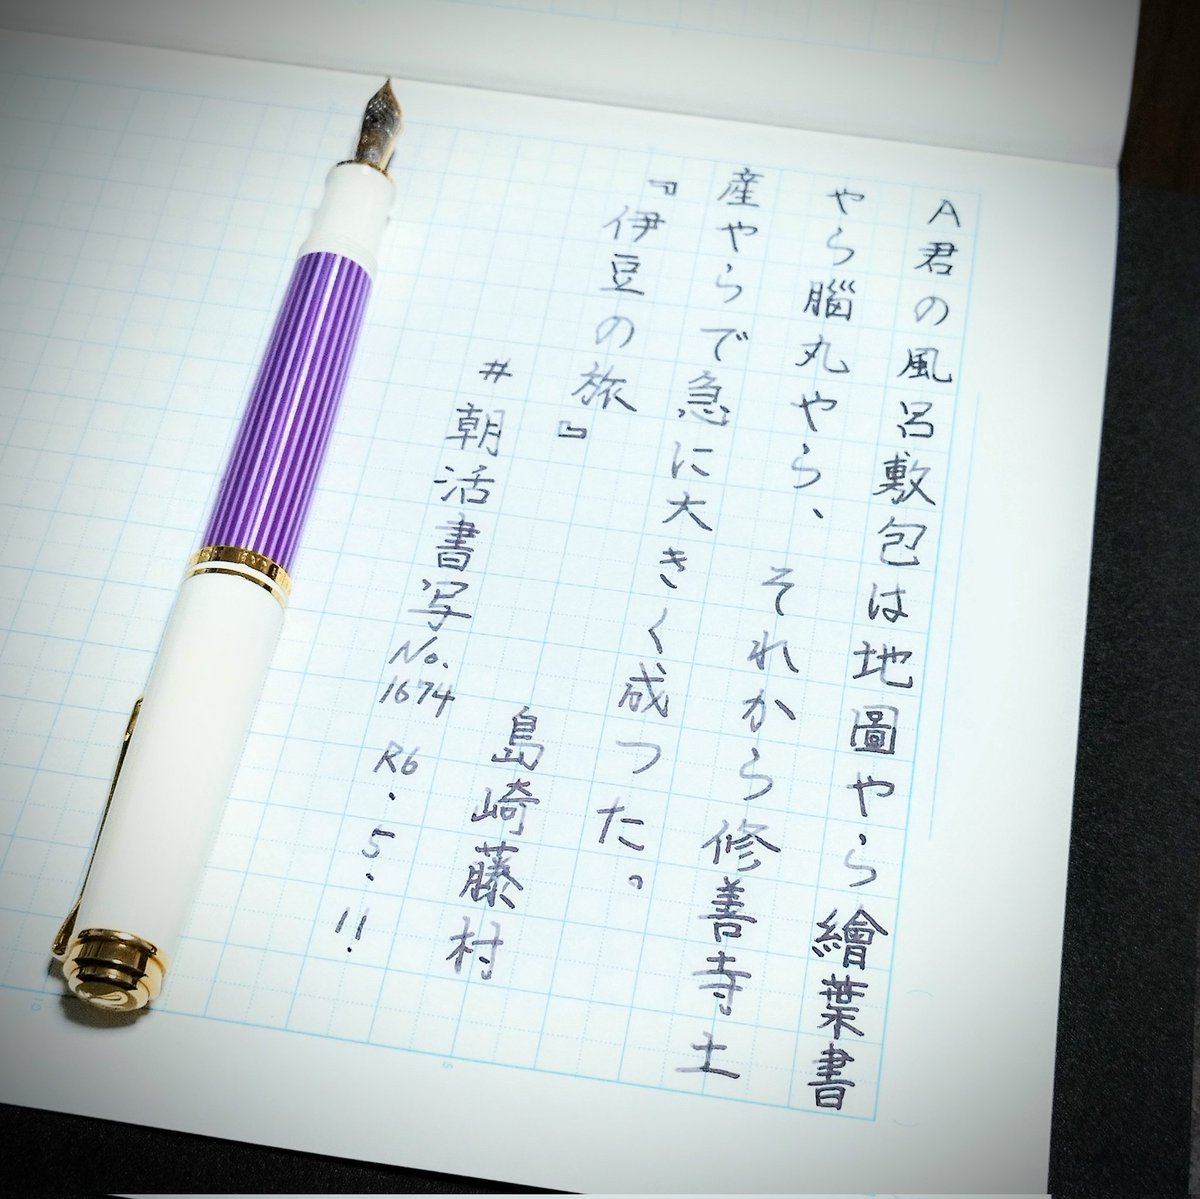 A君の風呂敷包は地圖やら繪葉書
やら腦丸やら、それから修善寺土
産やらで急に大きく成つた。
『伊豆の旅』
島崎藤村
#朝活書写No.1674 R6.5.11.